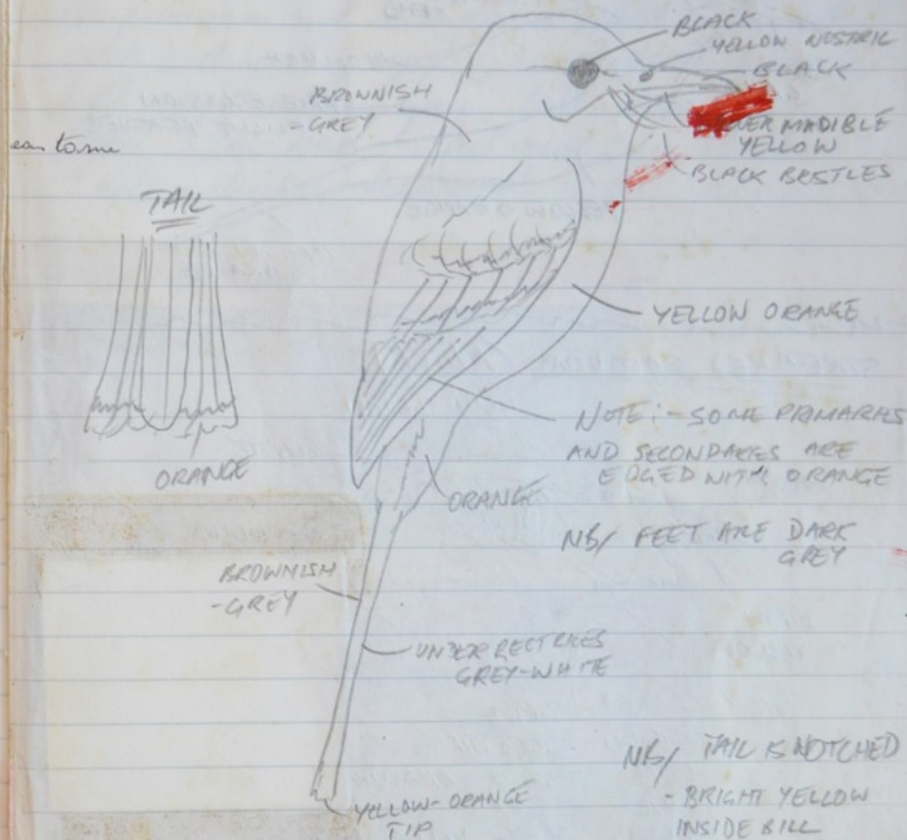 BLACK
YELLOW NOSTRIL
BLACK
BROWNISH
-GREY
MADIBLE
YELLOW
BLACK BRISTLES
TAIL
YELLOW ORANGE
NOTE:- SOME PRIMARIES
AND SECONDARIES ARE
EDGED WITH ORANGE
ORANGE
ORANGE
NB/ FEET ARE DARK
GREY
BROWNISH
-GREY
UNDER RECTRICES
GREY-WHITE
NB/ TAIL IS NOTCHED
- BRIGHT YELLOW
INSIDE BILL
YELLOW-ORANGE
TIP